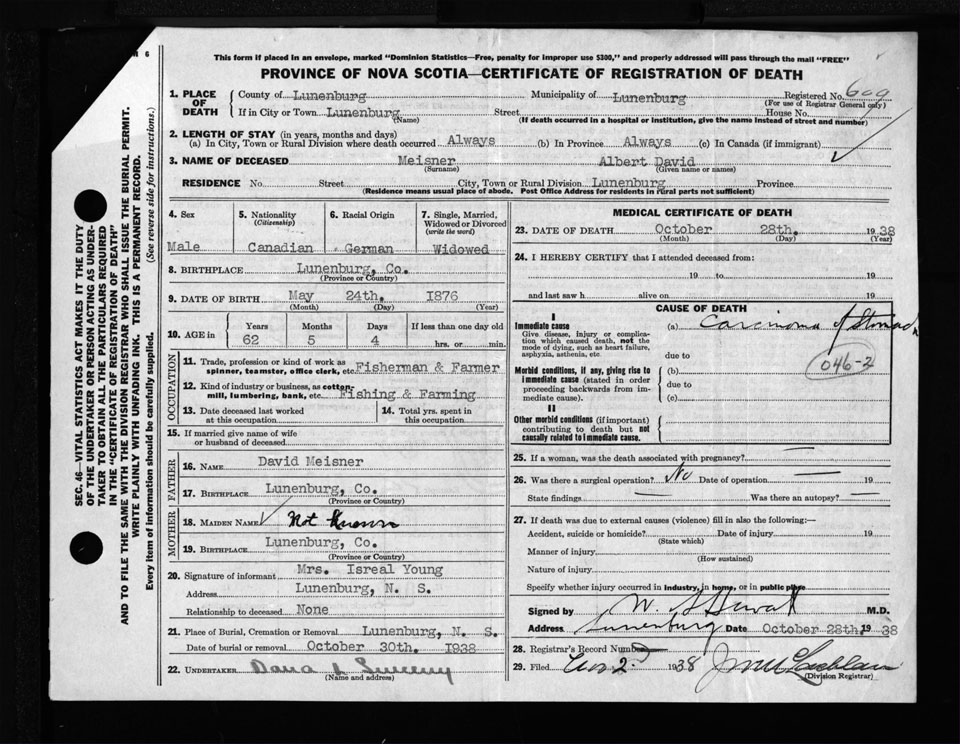 This form if placed in an envelope, marked "Dominion Statistics—Free, penalty for improper use $300," and properly addressed will pass through the mail "FREE"
PROVINCE OF NOVA SCOTIA—CERTIFICATE OF REGISTRATION OF DEATH
1. PLACE OF DEATH
County of Lunenburg Municipality of Lunenburg Registered No. 609
(For use of Registrar General only)
If in City or Town Lunenburg Street House No.
(Name) (If death occurred in a hospital or institution, give the name instead of street and number)
2. LENGTH OF STAY (in years, months and days)
(a) In City, Town or Rural Division where death occurred Always (b) In Province Always (c) In Canada (if immigrant)
3. NAME OF DECEASED Meisner Albert David
(Surname) (Given name or names)
RESIDENCE No. Street City, Town or Rural Division Lunenburg Province
(Residence means usual place of abode. Post Office Address for residents in rural parts not sufficient)
4. Sex 5. Nationality (Citizenship) 6. Racial Origin 7. Single, Married, Widowed or Divorced (write the word)
Male Canadian German Widowed
8. BIRTHPLACE Lunenburg, Co.
(Province or Country)
9. DATE OF BIRTH May 24th. 1876
(Month) (Day) (Year)
10. AGE in Years Months Days If less than one day old
62 5 4 hrs. or min.
OCCUPATION
11. Trade, profession or kind of work as spinner, teamster, office clerk, etc. Fisherman & Farmer
12. Kind of industry or business, as cotton-mill, lumbering, bank, etc. Fishing & Farming
13. Date deceased last worked at this occupation
14. Total yrs. spent in this occupation
15. If married give name of wife or husband of deceased
FATHER
16. NAME David Meisner
17. BIRTHPLACE Lunenburg, Co.
(Province or Country)
MOTHER
18. MAIDEN NAME Not Known
19. BIRTHPLACE Lunenburg, Co.
(Province or Country)
20. Signature of informant Mrs. Isreal Young
Address Lunenburg, N. S.
Relationship to deceased None
21. Place of Burial, Cremation or Removal Lunenburg, N. S.
Date of burial or removal October 30th. 1938
22. UNDERTAKER Dana L Sweeny
(Name and address)
MEDICAL CERTIFICATE OF DEATH
23. DATE OF DEATH October 28th. 1938
(Month) (Day) (Year)
24. I HEREBY CERTIFY that I attended deceased from:
19 to 19
and last saw h alive on 19
CAUSE OF DEATH
I
Immediate cause
Give disease, injury or complication which caused death, not the mode of dying, such as heart failure, asphyxia, asthenia, etc.
(a) Carcinoma of Stomach
046-2
due to
Morbid conditions, if any, giving rise to immediate cause (stated in order proceeding backwards from immediate cause).
(b)
due to
(c)
II
Other morbid conditions (if important) contributing to death but not causally related to immediate cause.
25. If a woman, was the death associated with pregnancy?
26. Was there a surgical operation? No Date of operation 19
State findings Was there an autopsy?
27. If death was due to external causes (violence) fill in also the following:—
Accident, suicide or homicide? Date of injury 19
(State which)
Manner of injury
(How sustained)
Nature of injury
Specify whether injury occurred in industry, in home, or in public place
Signed by M.D.
Address Lunenburg Date October 28th. 1938
28. Registrar's Record Number
29. Filed 2 1938
(Division Registrar)
SEC. 46—VITAL STATISTICS ACT MAKES IT THE DUTY
OF THE UNDERTAKER OR PERSON ACTING AS UNDER-
TAKER TO OBTAIN ALL THE PARTICULARS REQUIRED
IN THE "CERTIFICATE OF REGISTRATION OF DEATH"
AND TO FILE THE SAME WITH THE DIVISION REGISTRAR WHO SHALL ISSUE THE BURIAL PERMIT.
WRITE PLAINLY WITH UNFADING INK. THIS IS A PERMANENT RECORD.
Every item of information should be carefully supplied. (See reverse side for instructions.)
6